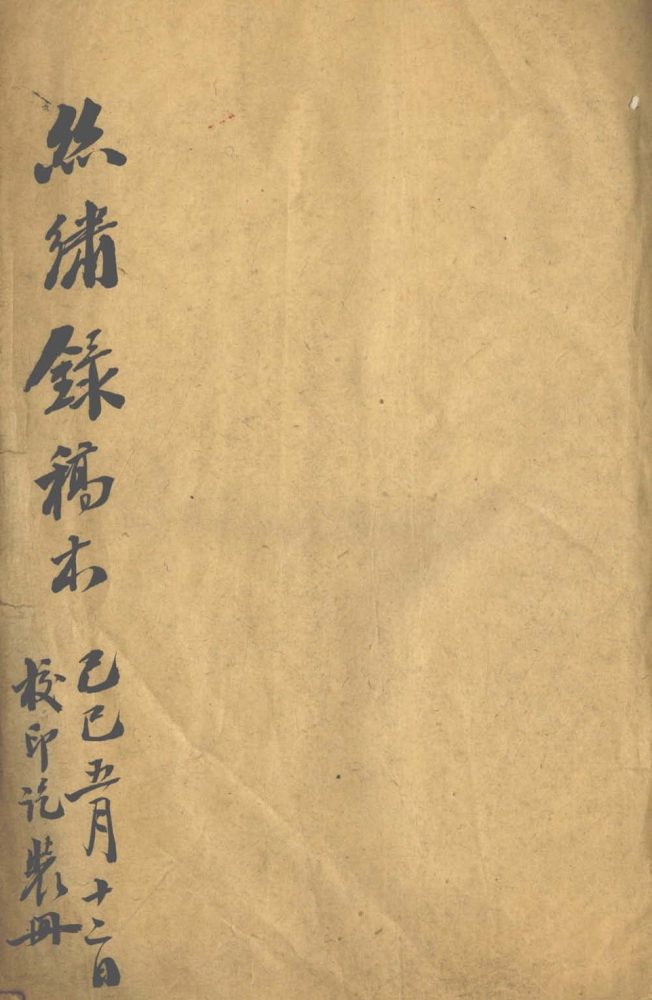 絲繡錄稿本
己巳五月十二日
校印訖裝冊